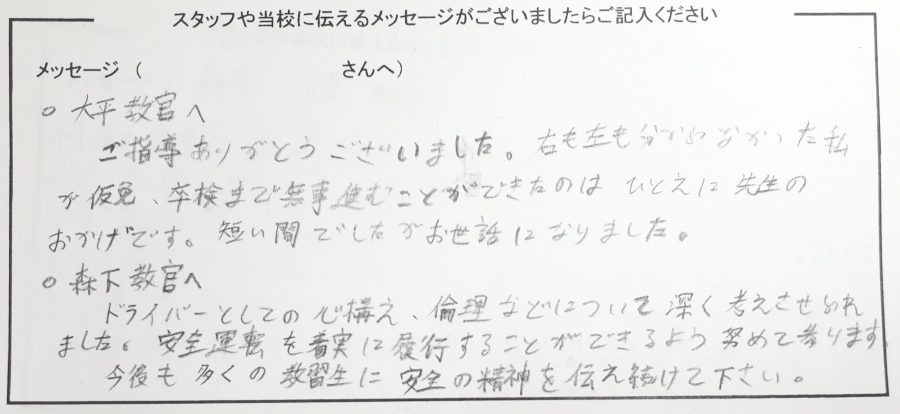 スタッフや当校に伝えるメッセージがございましたらご記入ください
メッセージ ( さんへ)
○ 大平教官へ
ご指導ありがとうございました。右も左も分からなかった私
が仮免、卒検まで無事進むことができたのは ひとえに先生の
おかげです。短い間でしたがお世話になりました。
○ 森下教官へ
ドライバーとしての心構え、倫理などについて深く考えさせられ
ました。安全運転を着実に履行することができるよう努めて参ります
今後も多くの教習生に安全の精神を伝え続けて下さい。